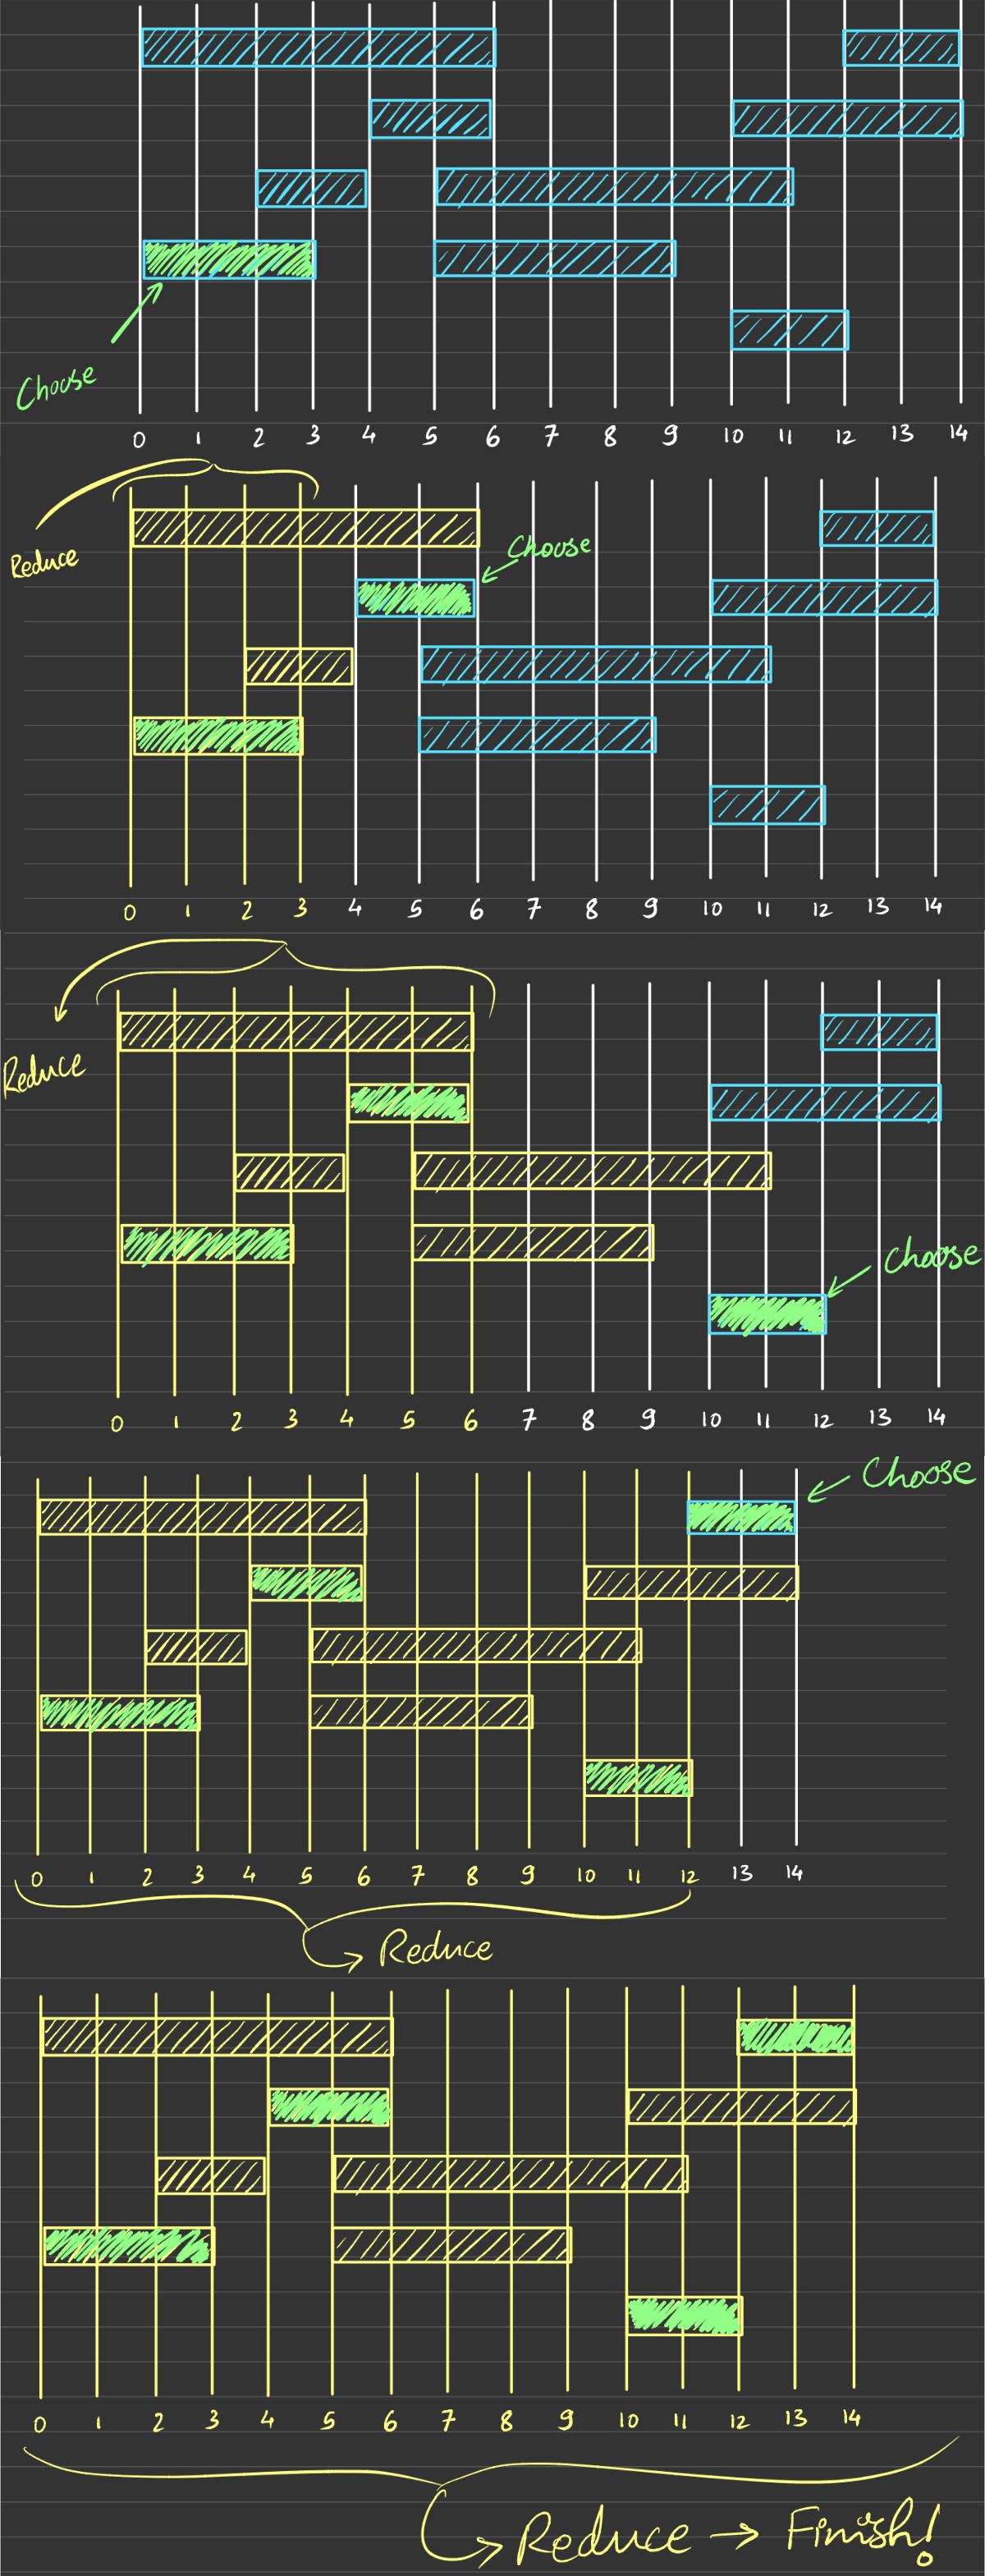 Choose
0 1 2 3 4 5 6 7 8 9 10 11 12 13 14
Reduce
Choose
0 1 2 3 4 5 6 7 8 9 10 11 12 13 14
Reduce
Choose
0 1 2 3 4 5 6 7 8 9 10 11 12 13 14
Choose
0 1 2 3 4 5 6 7 8 9 10 11 12 13 14
Reduce
0 1 2 3 4 5 6 7 8 9 10 11 12 13 14
Reduce → Finish!